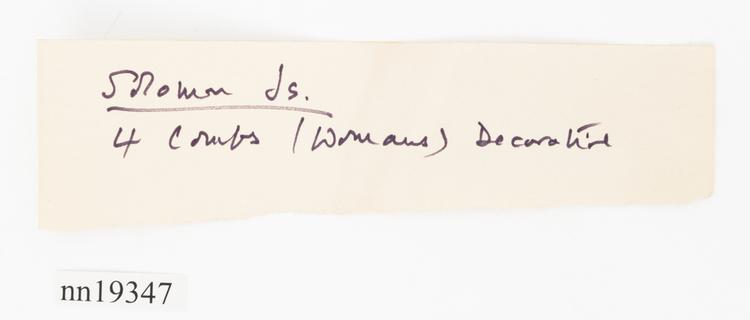 Solomon Is.
4 Combs (Womans) Decorative
nn19347